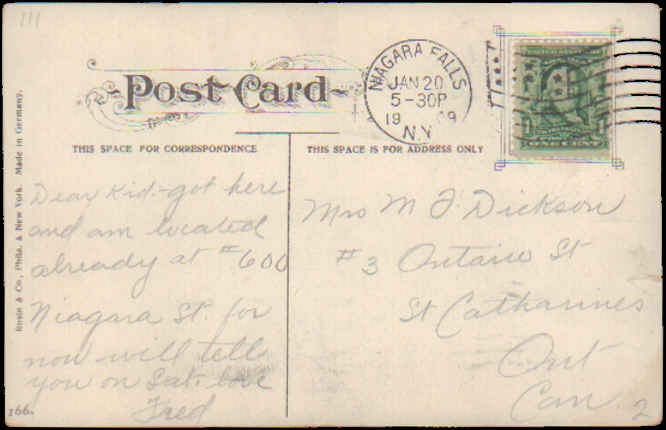 111
Post Card
NIAGARA FALLS
JAN 20
5-30P
19 09
N.Y.
ONE CENT
THIS SPACE FOR CORRESPONDENCE
THIS SPACE IS FOR ADDRESS ONLY
Dear Kid - got here
and am located
already at #600
Niagara St. for
now will tell
you on Sat. love
Fred
Mrs M J Dickson
#3 Ontario St
St Catharines
Ont
Can.
2
& Co., Phila. & New York. Made in Germany.
166.